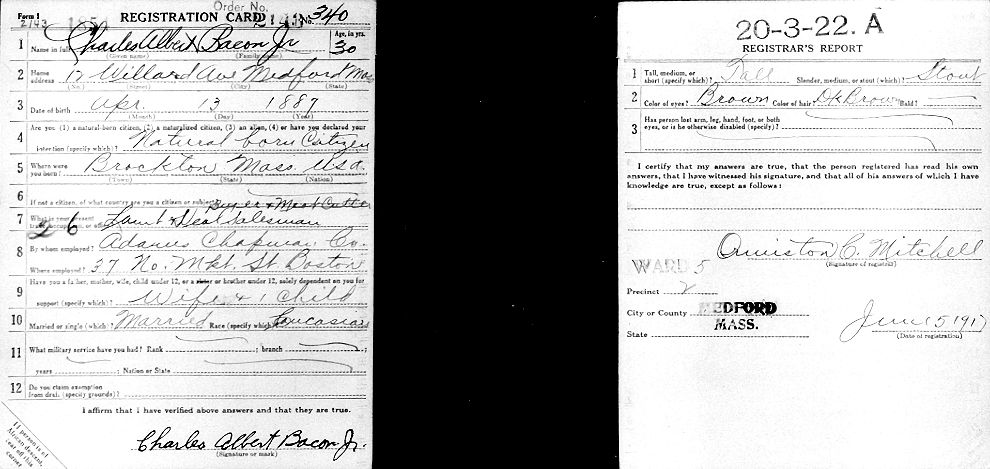 Form 1
Order No.
REGISTRATION CARD
No. 340
1 Name in full Charles Albert Bacon Jr
(Given name) (Family name)
Age, in yrs. 30
2 Home address 17 Willard Ave Medford Mass
(No.) (Street) (City) (State)
3 Date of birth Apr. 13 1887
(Month) (Day) (Year)
Are you (1) a natural-born citizen, (2) a naturalized citizen, (3) an alien, (4) or have you declared your
4 intention (specify which)? Natural born Citizen
5 Where were you born? Brockton Mass. USA
(Town) (State) (Nation)
6 If not a citizen, of what country are you a citizen or subject?
Buyer & Meat Cutter
7 What is your present trade, occupation, or office? Lamb & Veal Salesman
26
8 By whom employed? Adams Chapman Co.
Where employed? 37 No. Mkt. St Boston
Have you a father, mother, wife, child under 12, or a sister or brother under 12, solely dependent on you for
9 support (specify which)? Wife & 1 child
10 Married or single (which)? Married Race (specify which)? Caucasian
11 What military service have you had? Rank ; branch ;
years ; Nation or State
12 Do you claim exemption
from draft (specify grounds)?
I affirm that I have verified above answers and that they are true.
Charles Albert Bacon Jr.
(Signature or mark)
If person is of
African descent,
tear off this
corner
20-3-22. A
REGISTRAR'S REPORT
1 Tall, medium, or short (specify which)? Tall Slender, medium, or stout (which)? Stout
2 Color of eyes? Brown Color of hair? Dk Brown Bald?
3 Has person lost arm, leg, hand, foot, or both
eyes, or is he otherwise disabled (specify)?
I certify that my answers are true, that the person registered has read his own
answers, that I have witnessed his signature, and that all of his answers of which I have
knowledge are true, except as follows:
Ormiston C. Mitchell
(Signature of registrar)
WARD 5
Precinct 2
City or County MEDFORD
State MASS.
June 5 1917
(Date of registration)